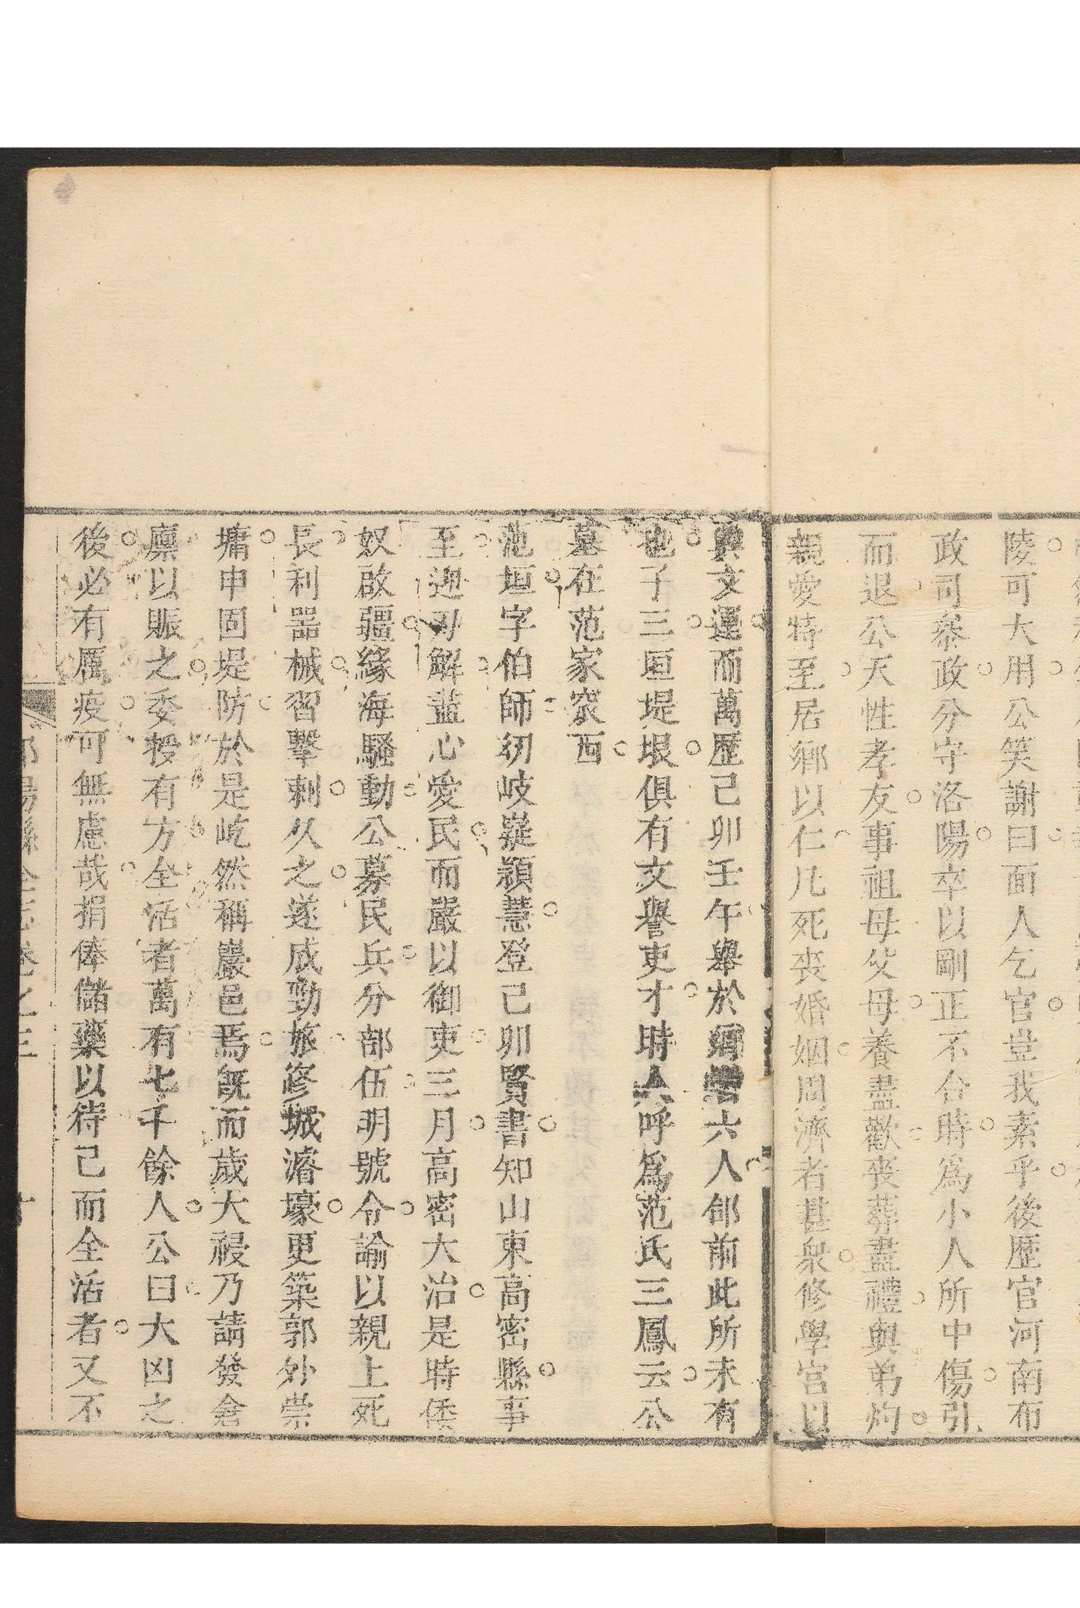 陵可大用公笑謝曰面人乞官豈我素乎後歴官河南布
政司叅政分守洛陽卒以剛正不合時爲小人所中傷引
而退公天性孝友事祖母父母養盡歡喪葬盡禮與弟灼
親愛特至居鄉以仁凡死喪婚姻周濟者甚衆修學宫以
興文運而萬歷己卯壬午舉於鄉者六人郃前此所未有
也子三垣堤垠俱有文譽吏才時人呼爲范氏三鳳云公
墓在范家窑西
范垣字伯師㓜岐嶷頴慧登己卯賢書知山東高密縣事
至迎刃解盖心愛民而嚴以御吏三月高密大治是時倭
奴啟疆緣海騷動公募民兵分部伍明號令諭以親上死
長利器械習擊刺久之遂成勁旅修城濬壕更築郭外崇
墉申固堤防於是屹然稱巖邑焉旣而歲大祲乃請發倉
廪以賑之委授有方全活者萬有七千餘人公曰大凶之
後必有厲疫可無慮哉捐俸儲藥以待己而全活者又不
郃陽縣全志卷之三